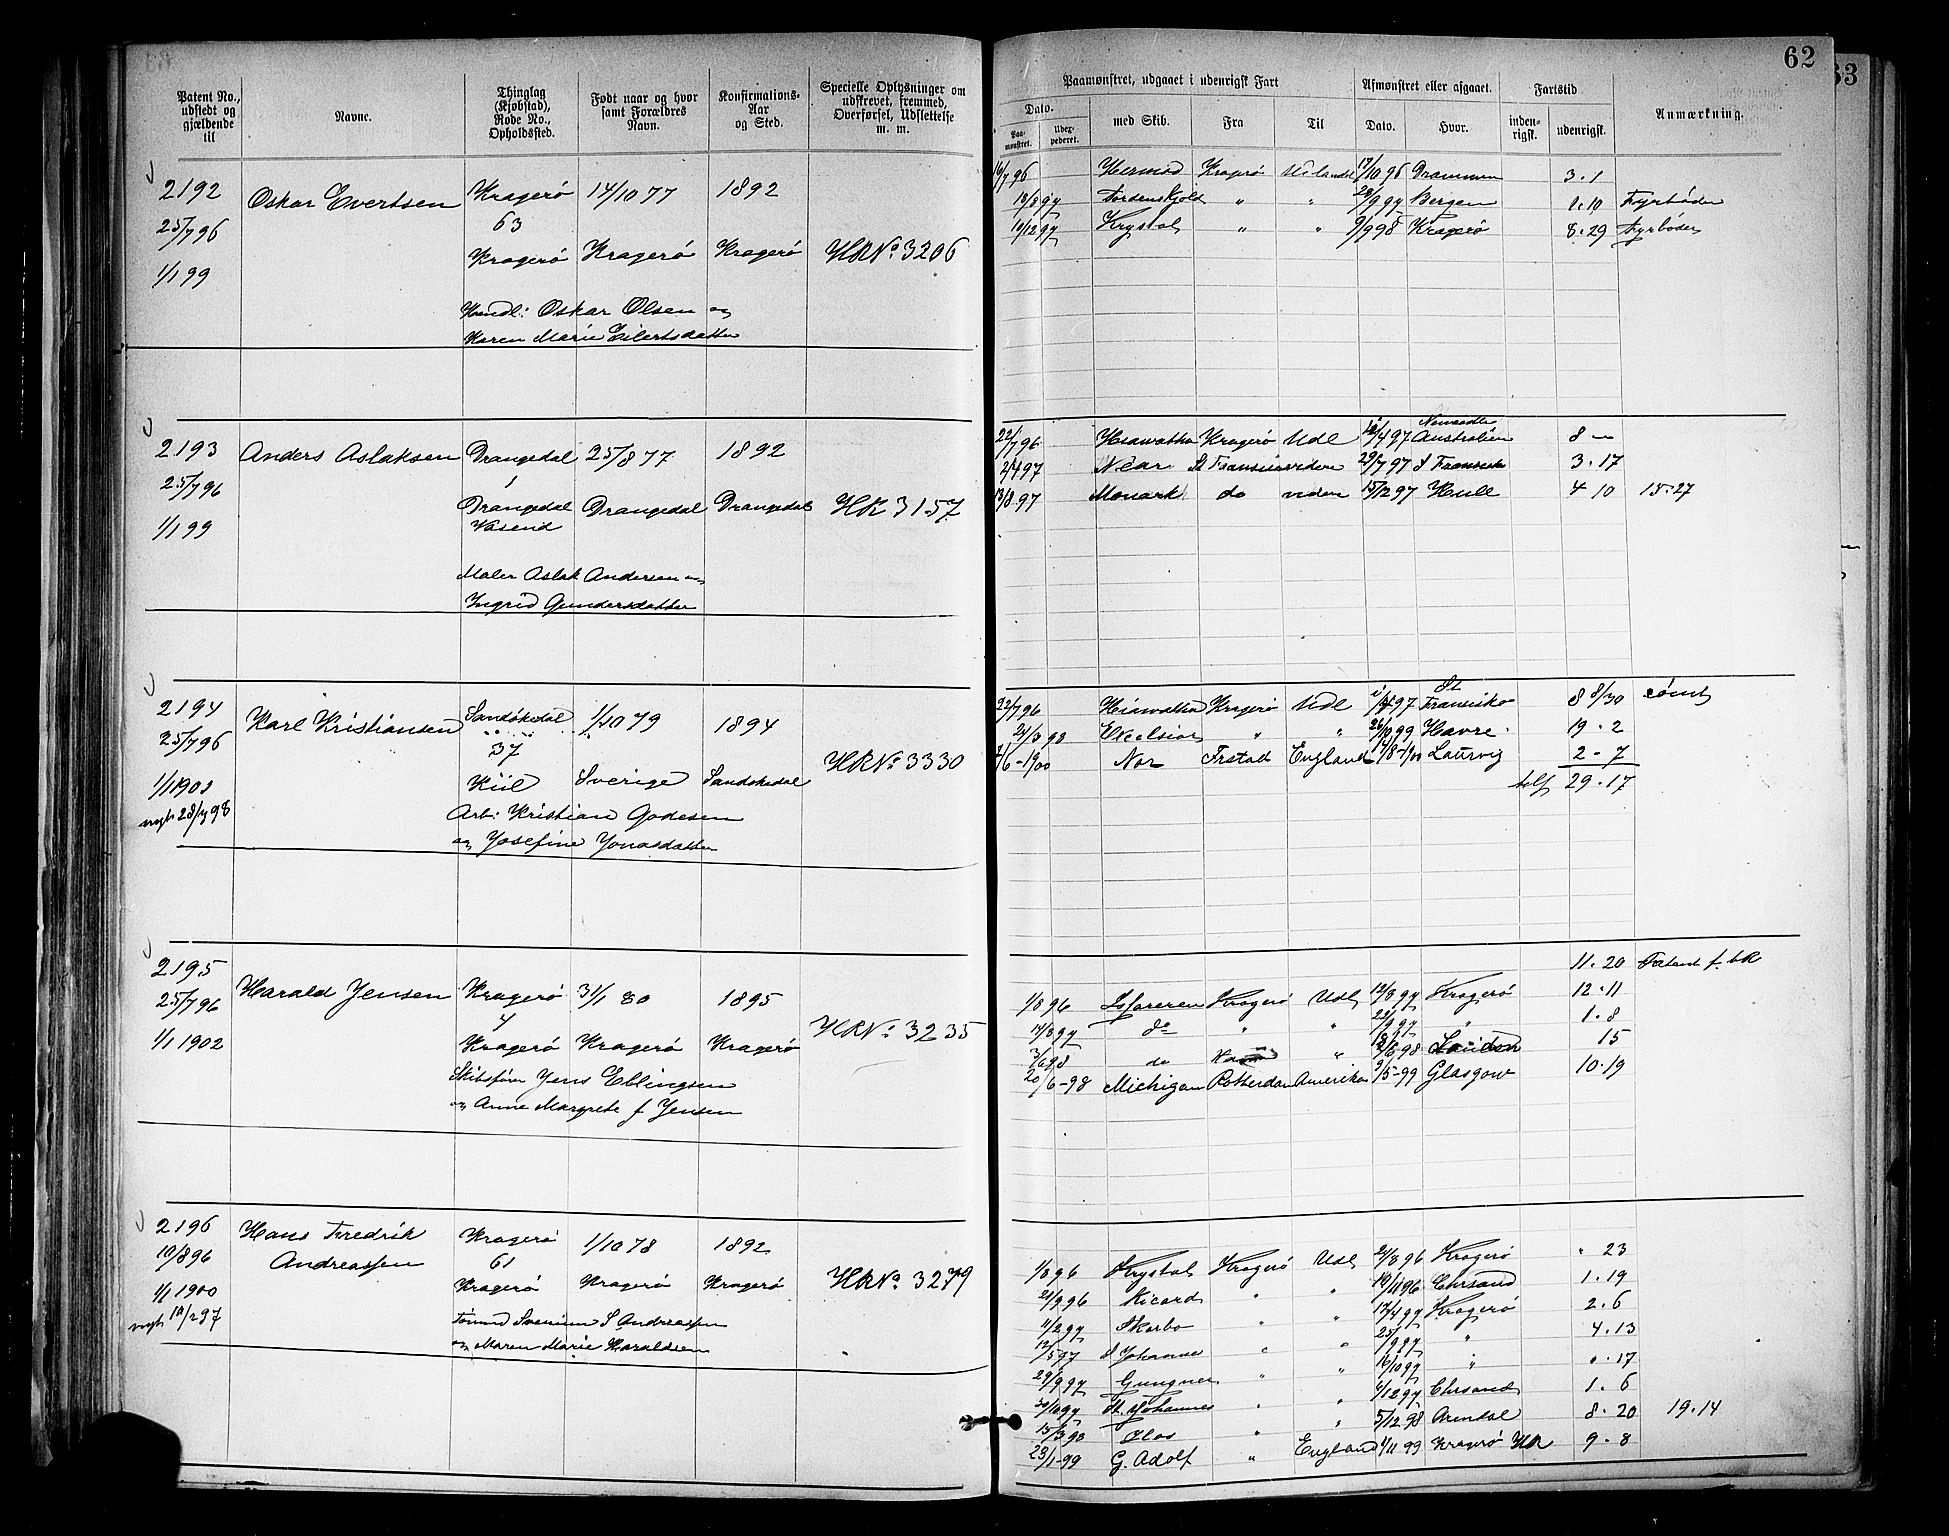 62
63
Patent No., udstedt og gjældende til
Navne.
Thinglag (Kjøbstad), Rode No., Opholdssted.
Født naar og hvor samt Forældres Navn.
Konfirmations-Aar og Sted.
Specielle Oplysninger om udskrevet, fremmed, Overførsel, Udslettelse m. m.
Paamønstret, udgaaet i udenrigsk Fart
Afmønstret eller afgaaet.
Fartstid
Anmærkning.
Dato.
Paamønstret.
Udexpederet.
med Skib.
Fra
Til
Dato.
Hvor.
indenrigsk.
udenrigsk.
2192 Oskar Evertsen Kragerø 14/10 77 1892
25/7 96 63
1/1 99 Kragerø Kragerø Kragerø HRNo. 3206
Oskar Olsen og
Karen Marie Eilertsdatter
16/7 96 Hermod Kragerø Udlandet 17/10 96 Drammen 3.1
13/8 97 Tordenskjold " " 28/9 97 Bergen 1.10 Fyrbøder
10/12 97 Krystal " " 9/9 98 Kragerø 8.29 Fyrbøder
2193 Anders Aslaksen Drangedal 25/8 77 1892
25/7 96 1
1/1 99 Drangedal Drangedal Drangedal HR 3157
Vasend
Maler Aslak Andersen og
Ingrid Gundersdatter
22/7 96 Hiawatha Kragerø Udl 12/4 97 Newcastle Australien 8 —
2/4 97 St Fransisco viden 29/7 97 S Fransisko 3.17
13/8 97 Monark do viden 15/12 97 Hull 4 10 15.27
2194 Karl Kristiansen Sandøkedal 1/10 79 1894
25/7 96 37
1/1 1902 Kiil Sverige Sandøkedal HRNo. 3330
nyt 28/7 98
Arb: Kristian Godesen
og Josefine Jonasdatter
22/7 96 Hiawatha Kragerø Udl 97 St Fransisko 8 8/30 rømt
21/3 98 Excelsior " " 26/10 99 Havre 19.2
2/6-1900 Nor Frstad England 1/8-1900 Laurvig 2-7
tilf 29.17
2195 Harald Jensen Kragerø 31/1 80 1895
25/7 96 4
1/1 1902 Kragerø Kragerø Kragerø HRNo. 3235
Skibsfører Jens Eblingsen
og Anne Margrete f Jensen
11.20 Patent f. HR
1/8 96 Kragerø Udl 12/8 97 Kragerø 12.11
14/8 97 do " " 22/9 97 " 1.8
3/6 98 do " 18/6 98 London 15
20/6-98 Michigan Rotterdam Amerika 9/5-99 Glasgow 10.19
2196 Hans Fredrik Andreassen Kragerø 1/10 78 1892
10/8 96 61
1/1 1900 Kragerø Kragerø Kragerø HRNo. 3279
nyt 10/2 97
Tømmd Svennum S Andreassen
og Maren Marie Haraldsen
1/8 96 Krystal Kragerø Udl 24/8 96 Kragerø " 23
21/9 96 Ricard " " 10/11 96 Chrsand 1.19
11/2 97 Skarbo " " 17/4 97 Kragerø 2.6
12/5 97 St Johannes " " 25/9 97 " 4.13
29/9 97 Gungner " " 16/10 97 " " 17
30/10 97 St. Johannes " " 6/12 97 Chrsand 1.6
15/3 98 Olas " " 5/12 98 Arendal 8.20 19.14
23/1-99 G. Adolf " England 1/11 99 Kragerø HR 9.8